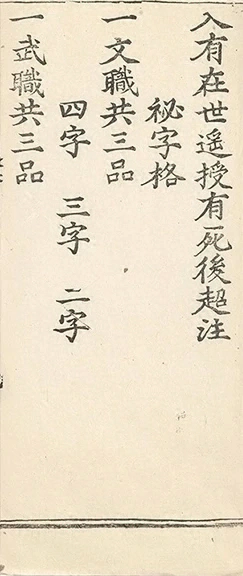 入有在世遥授有死後超注
祕字格
一文職共三品
四字 三字 二字
一武職共三品